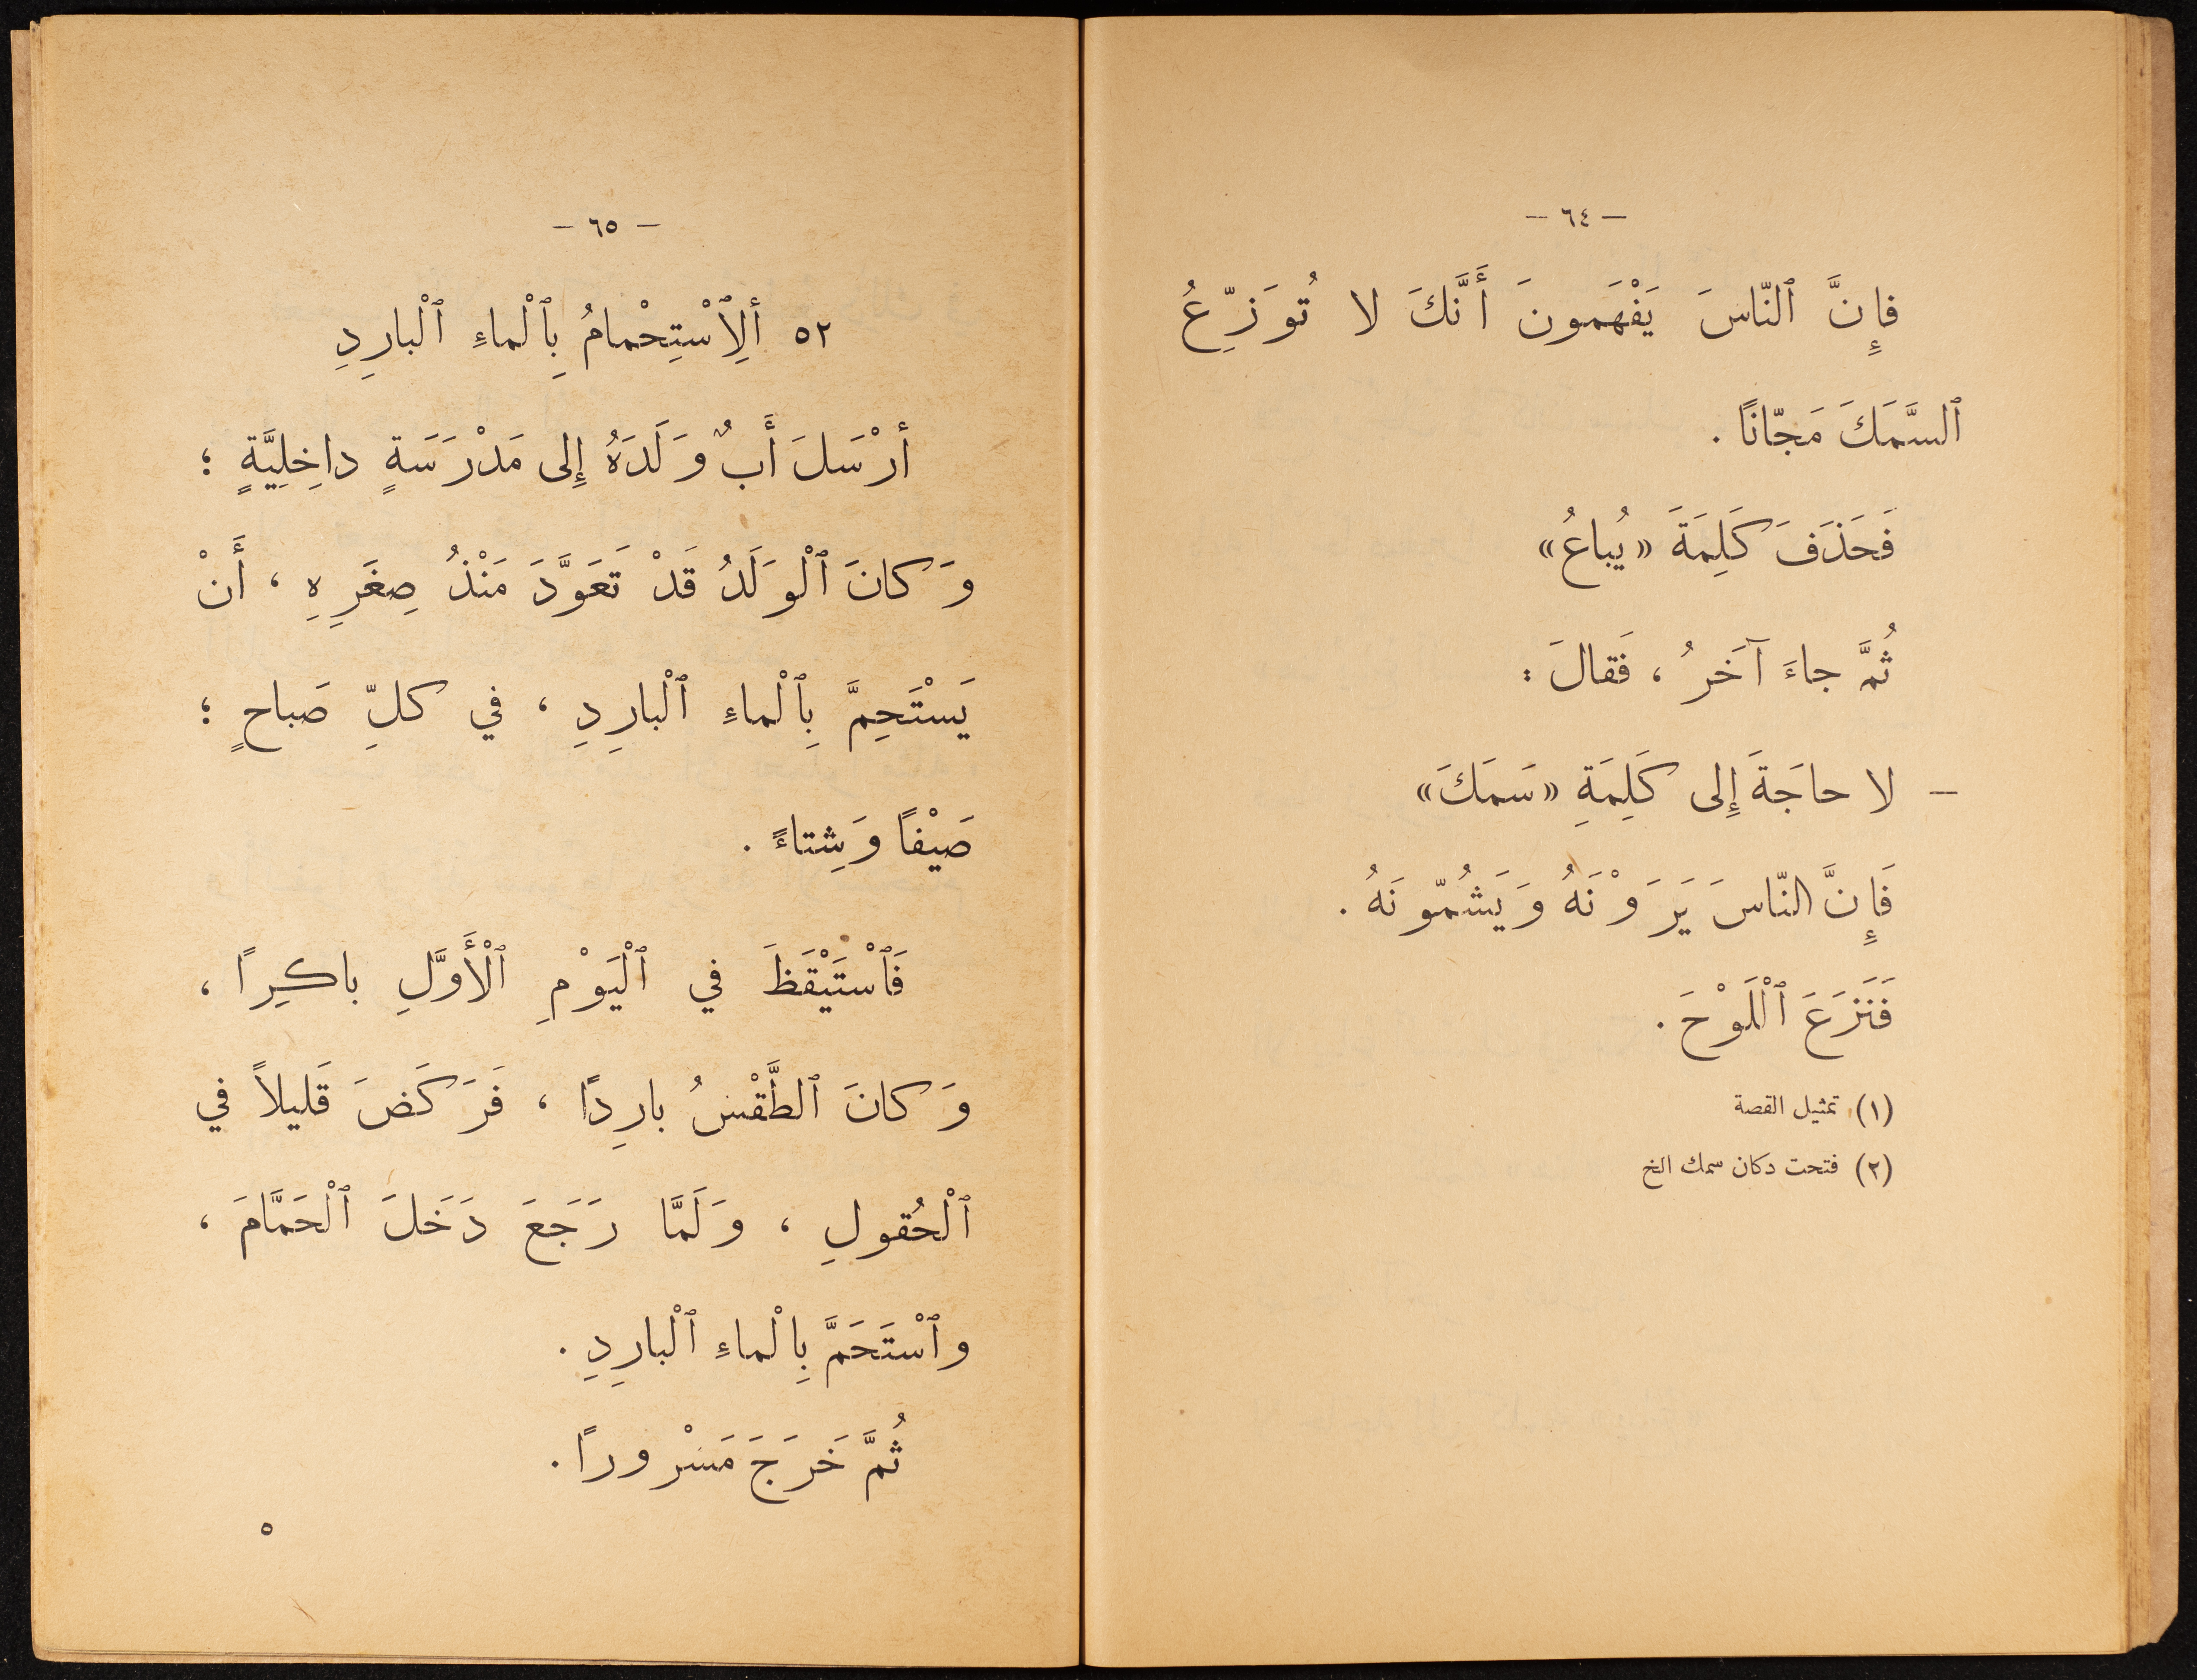 — ٦٤ —
فإِنَّ ٱلنّاسَ يَفْهَمونَ أَنَّكَ لا تُوَزِّعُ
ٱلسَّمَكَ مَجّانًا .
فَحَذَفَ كَلِمَةَ «يُباعُ»
ثُمَّ جاءَ آخَرُ ، فَقالَ :
— لا حاجَةَ إِلى كَلِمَةِ «سَمَكَ»
فَإِنَّ النّاسَ يَرَوْنَهُ وَيَشُمّونَهُ .
فَنَزَعَ ٱللَّوْحَ .
(١) تمثيل القصة
(٢) فتحت دكان سمك الخ
— ٦٥ —
٥٢ أَلِٱسْتِحْمامُ بِٱلْماءِ ٱلْبارِدِ
أرْسَلَ أَبٌ وَلَدَهُ إِلى مَدْرَسَةٍ داخِلِيَّةٍ ؛
وَكانَ ٱلْوَلَدُ قَدْ تَعَوَّدَ مَنْذُ صِغَرِهِ ، أَنْ
يَسْتَحِمَّ بِٱلْماءِ ٱلْبارِدِ ، في كلِّ صَباحٍ ؛
صَيْفًا وَشِتاءً .
فَٱسْتَيْقَظَ في ٱلْيَوْمِ ٱلْأَوَّلِ باكِرًا ،
وَكانَ ٱلطَّقْسُ بارِدًا ، فَرَكَضَ قَليلاً في
ٱلْحُقولِ ، وَلَمَّا رَجَعَ دَخَلَ ٱلْحَمَّامَ ،
وٱسْتَحَمَّ بِالْماءِ ٱلْبارِدِ .
ثُمَّ خَرَجَ مَسْرورًا .
٥